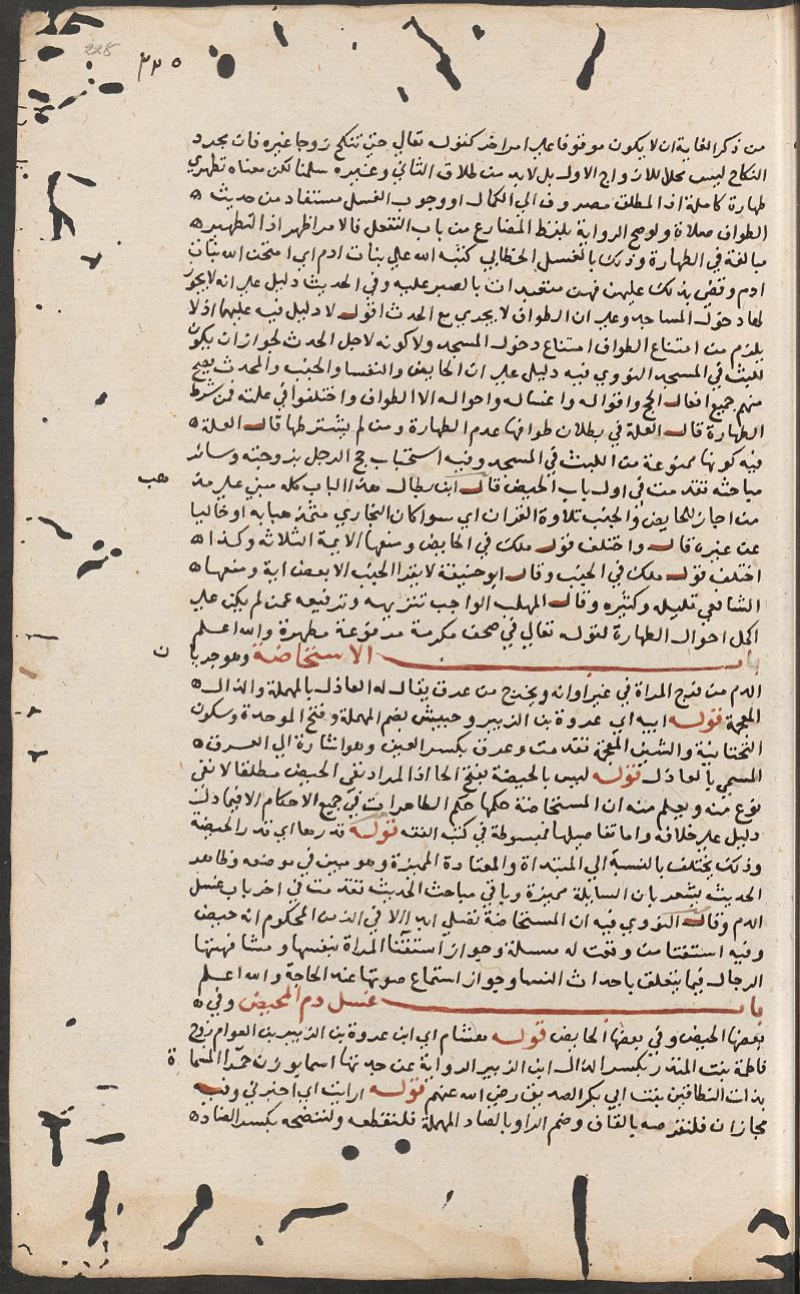 228
٢٢٥
من ذكر الغاية ان لا يكون موقوفا على امر اخر كقوله تعالى حتى تنكح زوجا غيره فان مجرد
النكاح ليس محللا للازواج الاول بل لابد من طلاق الثاني وغيره سلمنا لكن معناه تطهري
طهارة كاملة اذ المطلق مصروف الى الكمال او وجوب الغسل مستفاد من حديث
الطواف صلاة ولو صح الرواية بلفظ المضارع من باب التفعل فالامر اظهر اذ التطهير
مبالغة في الطهارة وذلك بالغسل الخطابي كتبه الله على بنات ادم اي امتحن الله بنات
ادم وقضى بذلك عليهن فهن متعبدات بالصبر عليه وفي الحديث دليل على انه لا يجوز
لها دخول المساجد وعلى ان الطواف لا يجزي مع الحدث اقول لا دليل فيه عليهما اذ لا
يلزم من امتناع الطواف امتناع دخول المسجد ولا كونه لاجل الحدث لجواز ان يكون
للبث في المسجد النووي فيه دليل على ان الحايض والنفسا والجنب والمحدث يصح
منهم جميع افعال الحج واقواله واغساله واحواله الا الطواف واختلفوا في علته فمن شرط
الطهارة قال العلة في بطلان طوافها عدم الطهارة ومن لم يشترطها قال العلة
فيه كونها ممنوعة من اللبث في المسجد وفيه استحباب حج الرجل بزوجته وسائر
مباحثه تقدمت في اول باب الحيض قال ابن بطال هذا الباب كله مبني على مذ
هب
من اجاز للحايض والجنب تلاوة القران اي سوا كان البخاري متمذهبا به او حاكيا
عن غيره قال واختلف قول ملك في الحايض ومنعها الايمة الثلاثه وكذا
اختلف قول ملك في الجنب وقال ابو حنيفة لا يقرا الجنب الا بعض اية ومنعها
الشافعي قليله وكثيره وقال المهلب الواجب تنزيهه وترفيعه عمن لم يكن على
اكمل احوال الطهارة لقوله تعالى في صحف مكرمة مرفوعة مطهرة والله اعلم
باب الاستحاضة وهو جريا
ن
الدم من فرج المراة في غير اوانه ويخرج من عرق يقال له العاذل بالمهملة والذال
المعجمة قوله ابيه اي عروة بن الزبير وحبيش بضم المهملة وفتح الموحدة وسكون
التحتانية والشين المعجمة تقدمت وعرق بكسر العين وهو اشارة الى العرق
المسمى بالعاذل قوله ليس بالحيضة بفتح الحا اذ المراد نفي الحيض مطلقا لا نفي
نوع منه ويعلم منه ان المستحاضة حكمها حكم الطاهرات في جميع الاحكام الا فيما دل
دليل على خلافه واما تفاصيلها فمبسوطة في كتب الفقه قوله قدرها اي قدر الحيضة
وذلك يختلف بالنسبة الى المبتداة والمعتادة المميزة وهو مبين في موضعه وظاهر
الحديث يشعر بان السايلة مميزة وباقي مباحث الحديث تقدمت في اخر باب غسل
الدم وقال النووي فيه ان المستحاضة تصلي ابدا الا في الزمن المحكوم انه حيض
وفيه استفتا من وقعت له مسلة وجواز استفتا المراة بنفسها ومشافهتها
الرجال فيما يتعلق باحداث النسا وجواز استماع صوتها عند الحاجة والله اعلم
باب غسل دم المحيض وفي
بعضها الحيض وفي بعضها الحايض قوله هشام اي ابن عروة بن الزبير بن العوام زوج
فاطمة بنت المنذر بكسر الذال ابن الزبير الرواية عن جدتها اسما بوزن حمرا المسما
ة
بذات النطاقين بنت ابي بكر الصديق رضي الله عنهم قوله ارايت اي اخبرني وفيه
مجازان فلتقرصه بالقاف وضم الرا وبالصاد المهملة فلتقطعه ولتنضحه بكسر الضاد